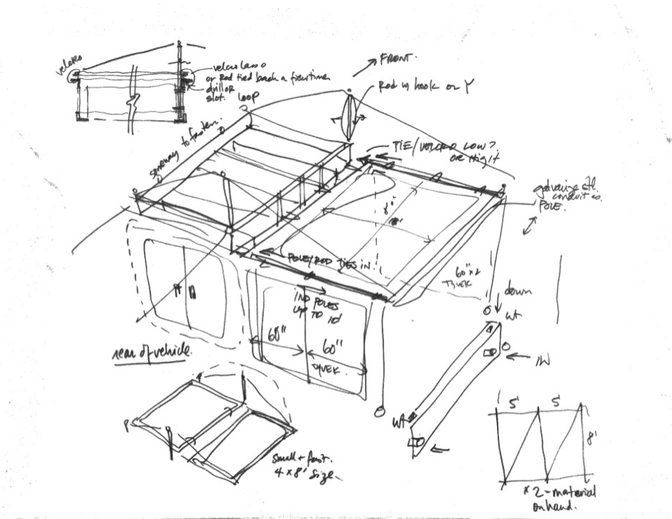 velcro
velcro
or Rod tied back
slot. loop
FRONT.
Rod w hook or Y
someway to fasten.
TIE/VELCRO LOW?
OR HIGH
galvanize stl.
conduit
POLE.
8'
POLE/ROD TIES IN.
60"
TYVEK
down
wt
IND POLES
UP TO 10'
60"
60"
TYVEK
rear of vehicle.
IN
wt
small + fast.
4 x 8' size.
5'
5'
8'
x 2 - material
on hand.